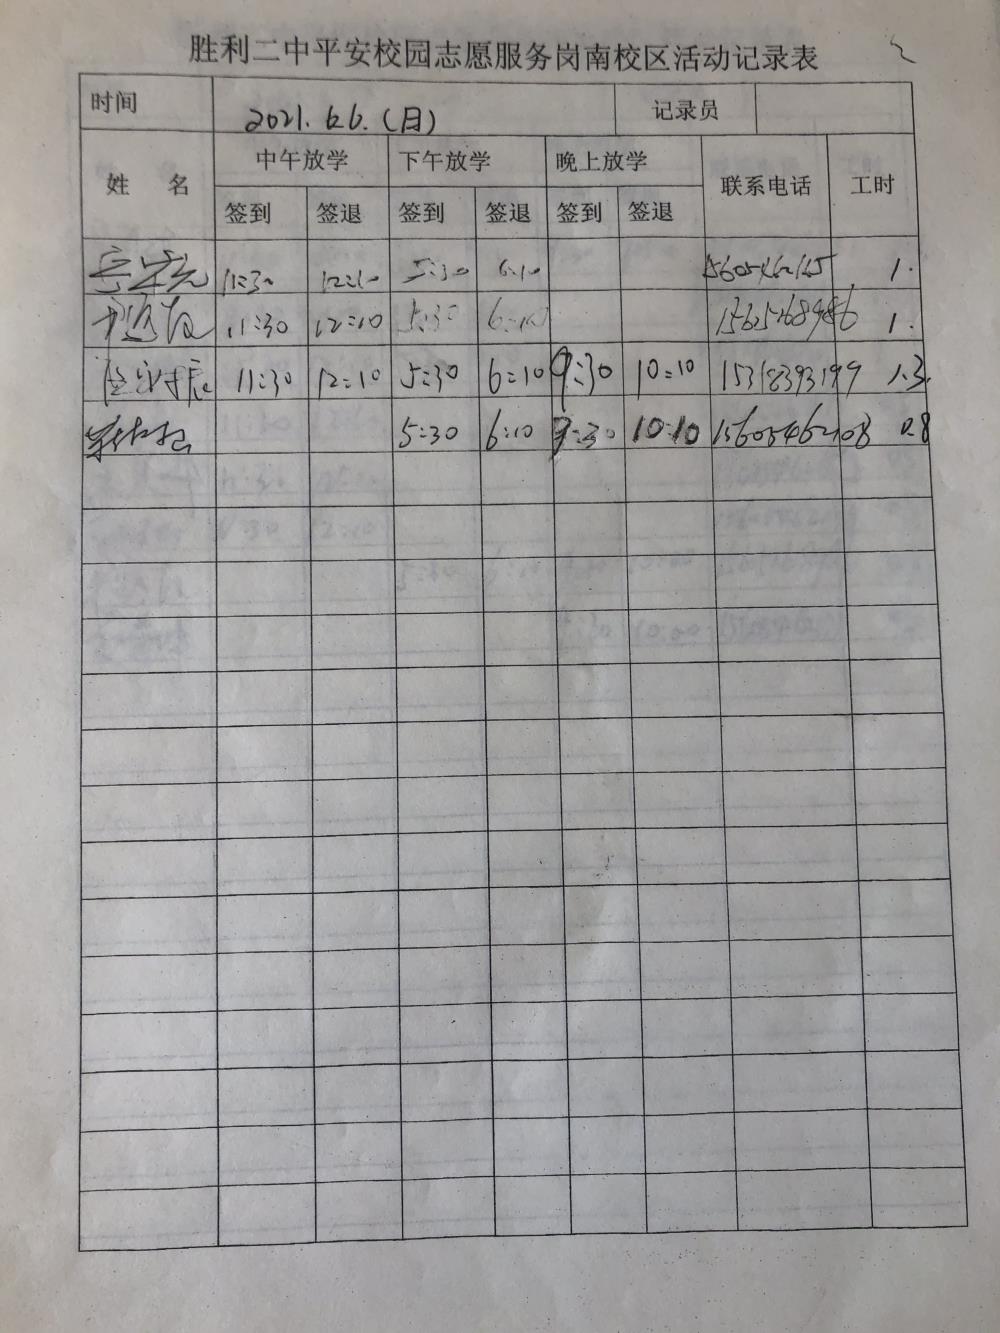 胜利二中平安校园志愿服务岗南校区活动记录表
时间 2021. 6.6. (日) 记录员
姓 名 中午放学 下午放学 晚上放学 联系电话 工时
签到 签退 签到 签退 签到 签退
11:30 12:10 5:30 6:10 1.
11:30 12:10 5:30 6:10 1.
11:30 12:10 5:30 6:10 9:30 10:10 15318393199 1.3.
5:30 6:10 9:30 10:10 15605462108 0.8